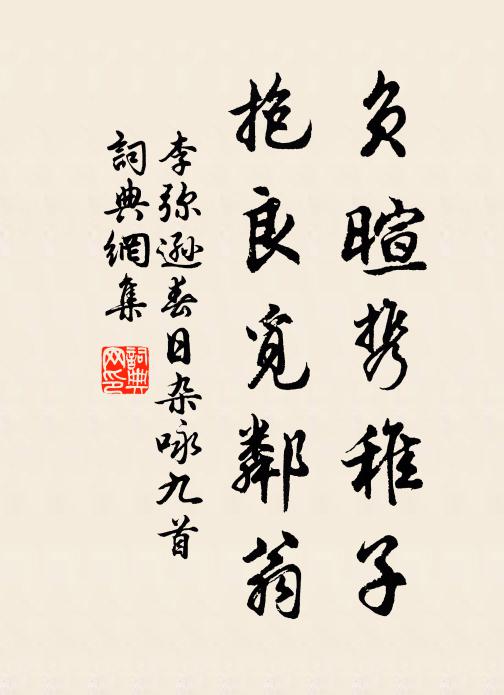 负暄携稚子
抱良觅鄰翁
李弥遜春日杂咏九首
詞典網集
詞典网印